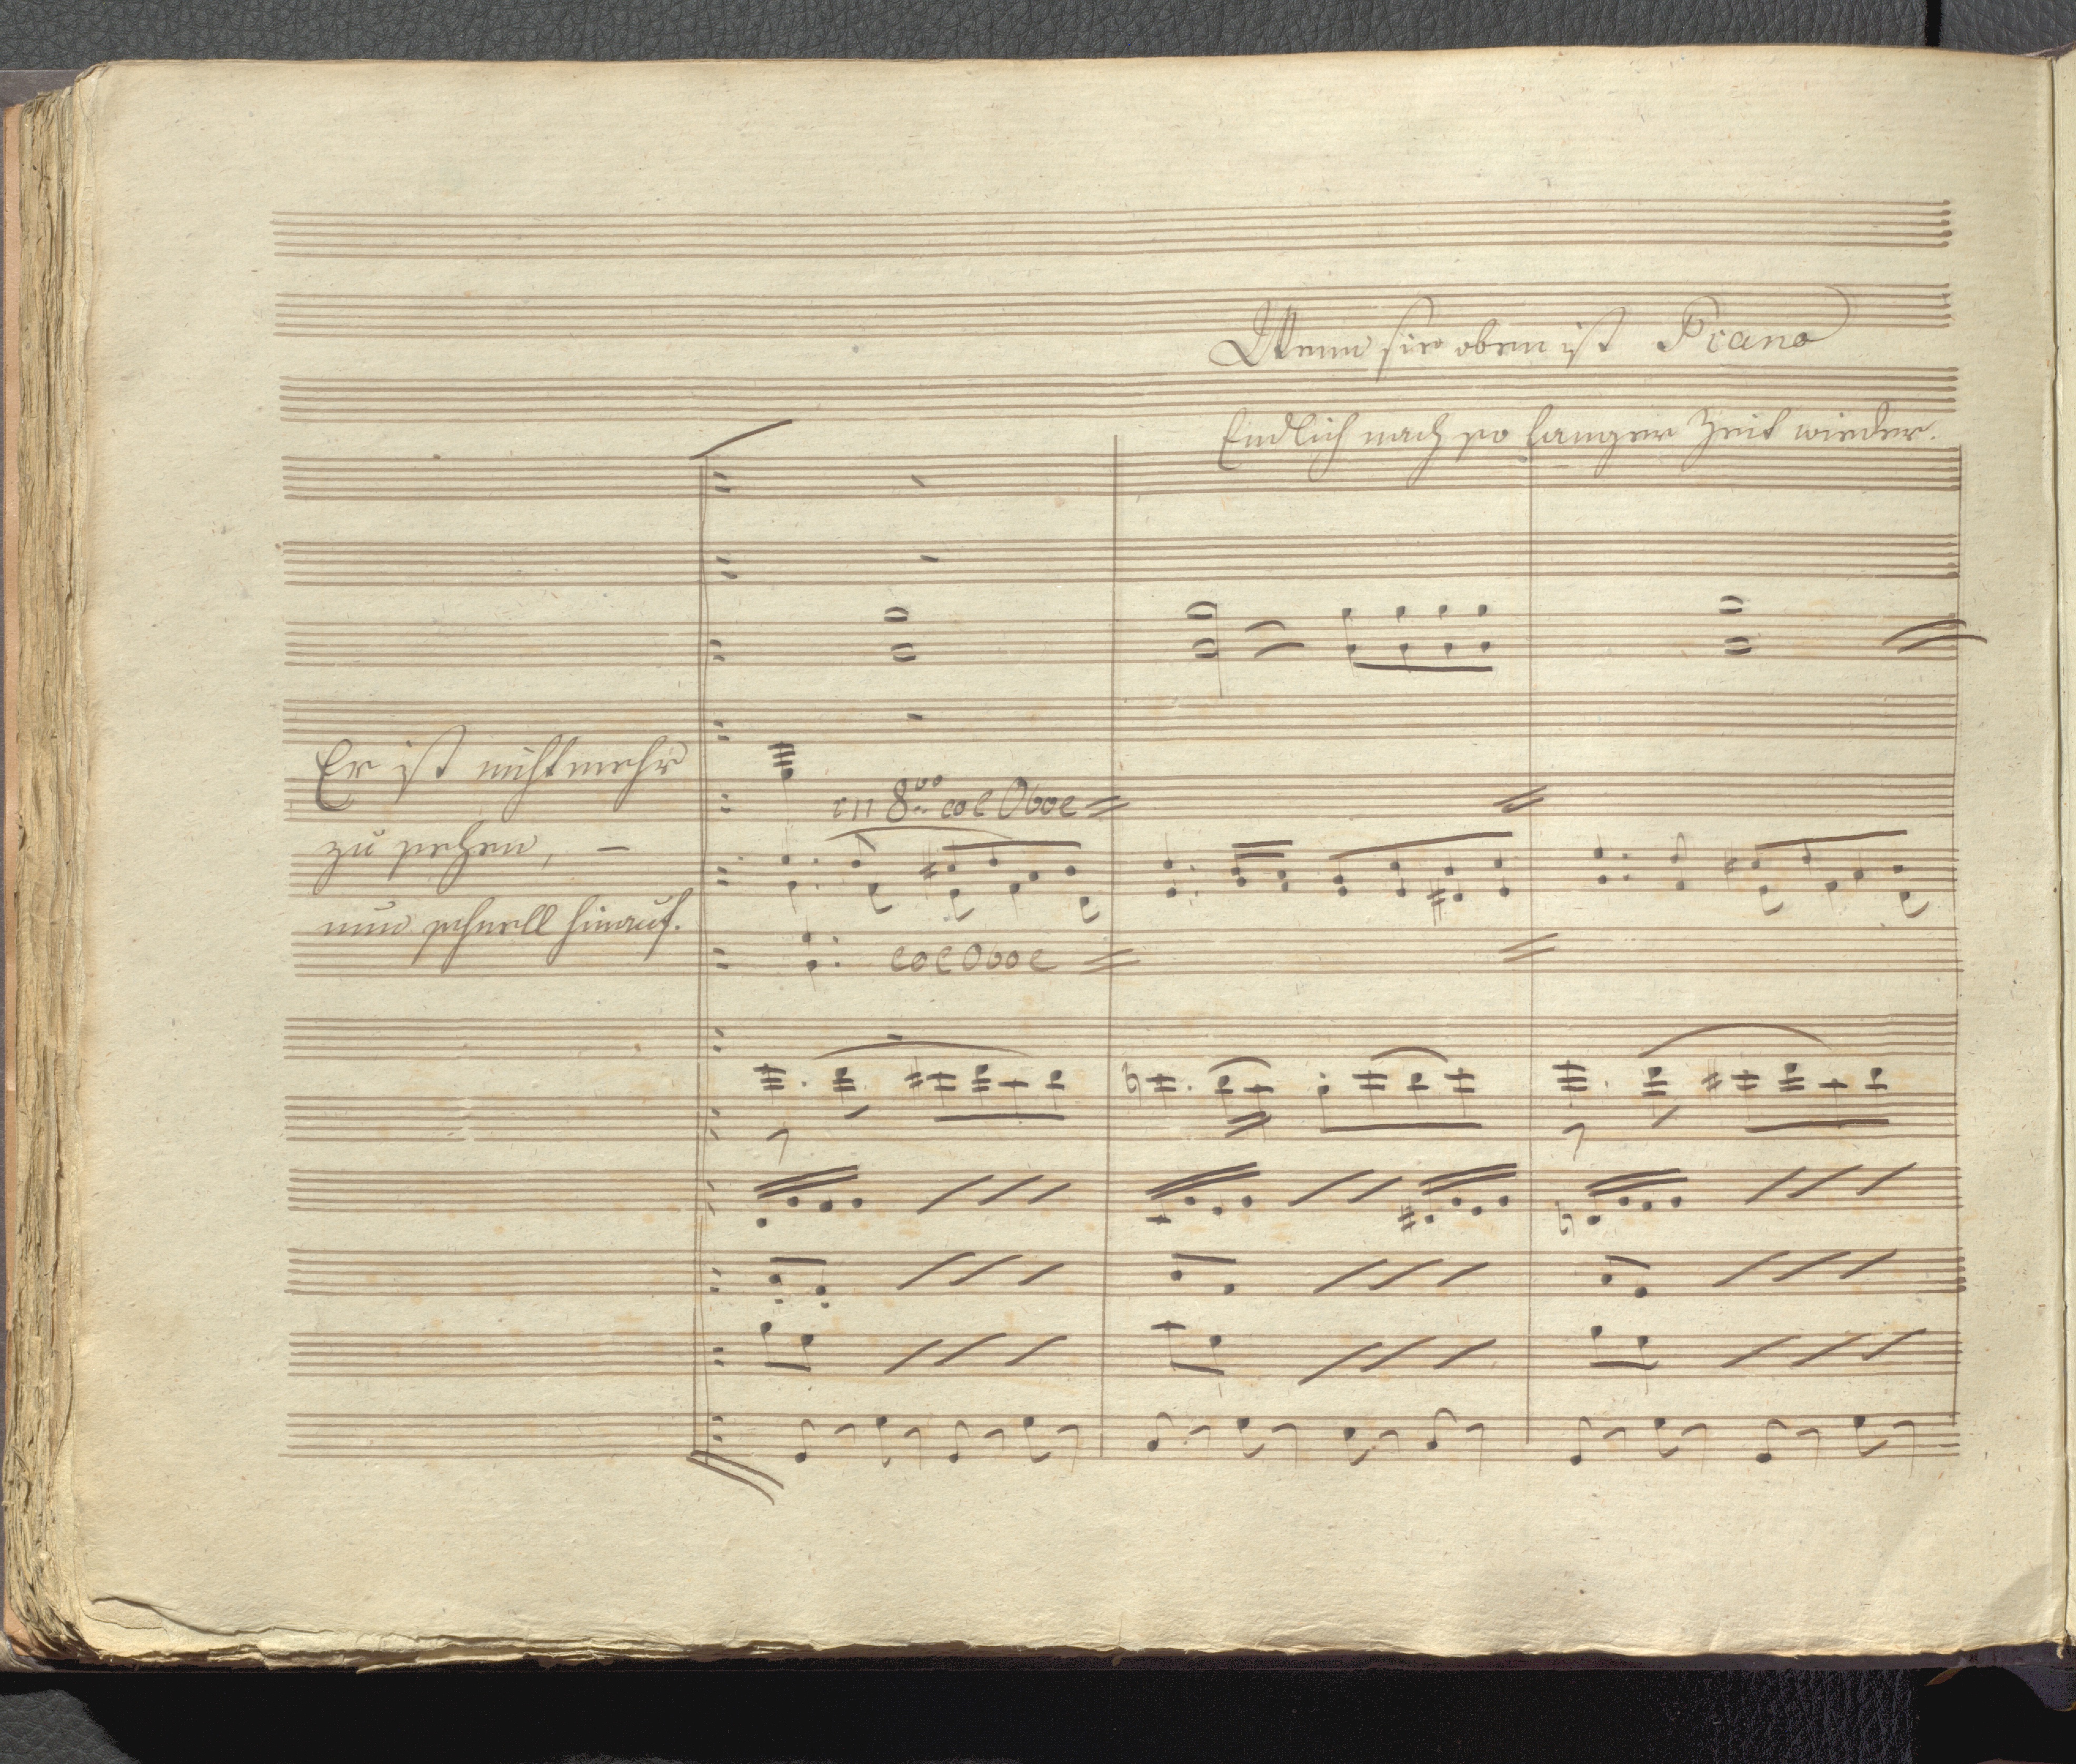 Wenn sie oben ist Piano
Endlich nach so langer Zeit wieder.
Er ist nicht mehr
zu sehen, –
nun schnell hinauf.
in 8va col Oboe
col Oboe